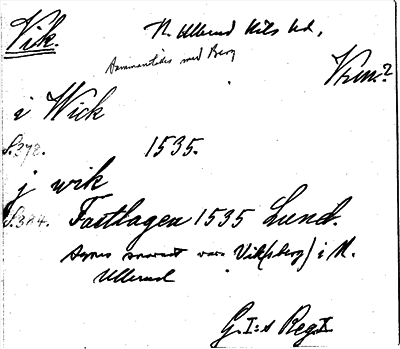 Vik.
N. Ullerud Kils hd,
Sammantides med Berg
Krim.?
i Wick
S.378. 1535.
j wik
S.384. Fastlagen 1535 Lund.
Synes snarast vara Vik(sberg) i N.
Ullerud
G.I:s Reg.I.